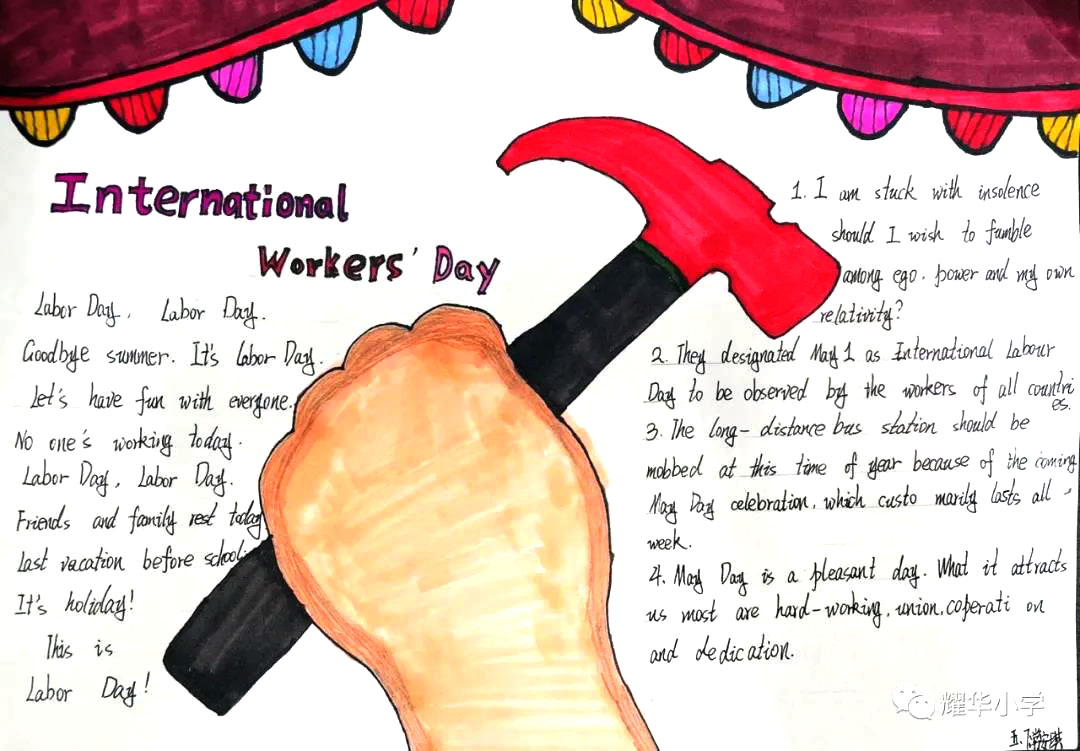 International
Workers' Day
Labor Day, Labor Day.
Goodbye summer. It's Labor Day.
Let's have fun with everyone.
No one's working today.
Labor Day, Labor Day.
Friends and family rest today
Last vacation before school
It's holiday!
This is
Labor Day!
1. I am stuck with insolence
should I wish to fumble
among ego. power and my own
relativity?
2. They designated May 1 as International Labour
Day to be observed by the workers of all countri
es.
3. The long-distance bus station should be
mobbed at this time of year because of the coming
May Day celebration, which customarily lasts all
week.
4. May Day is a pleasant day. What it attracts
us most are hard-working, union, coperati on
and dedication.
耀华小学